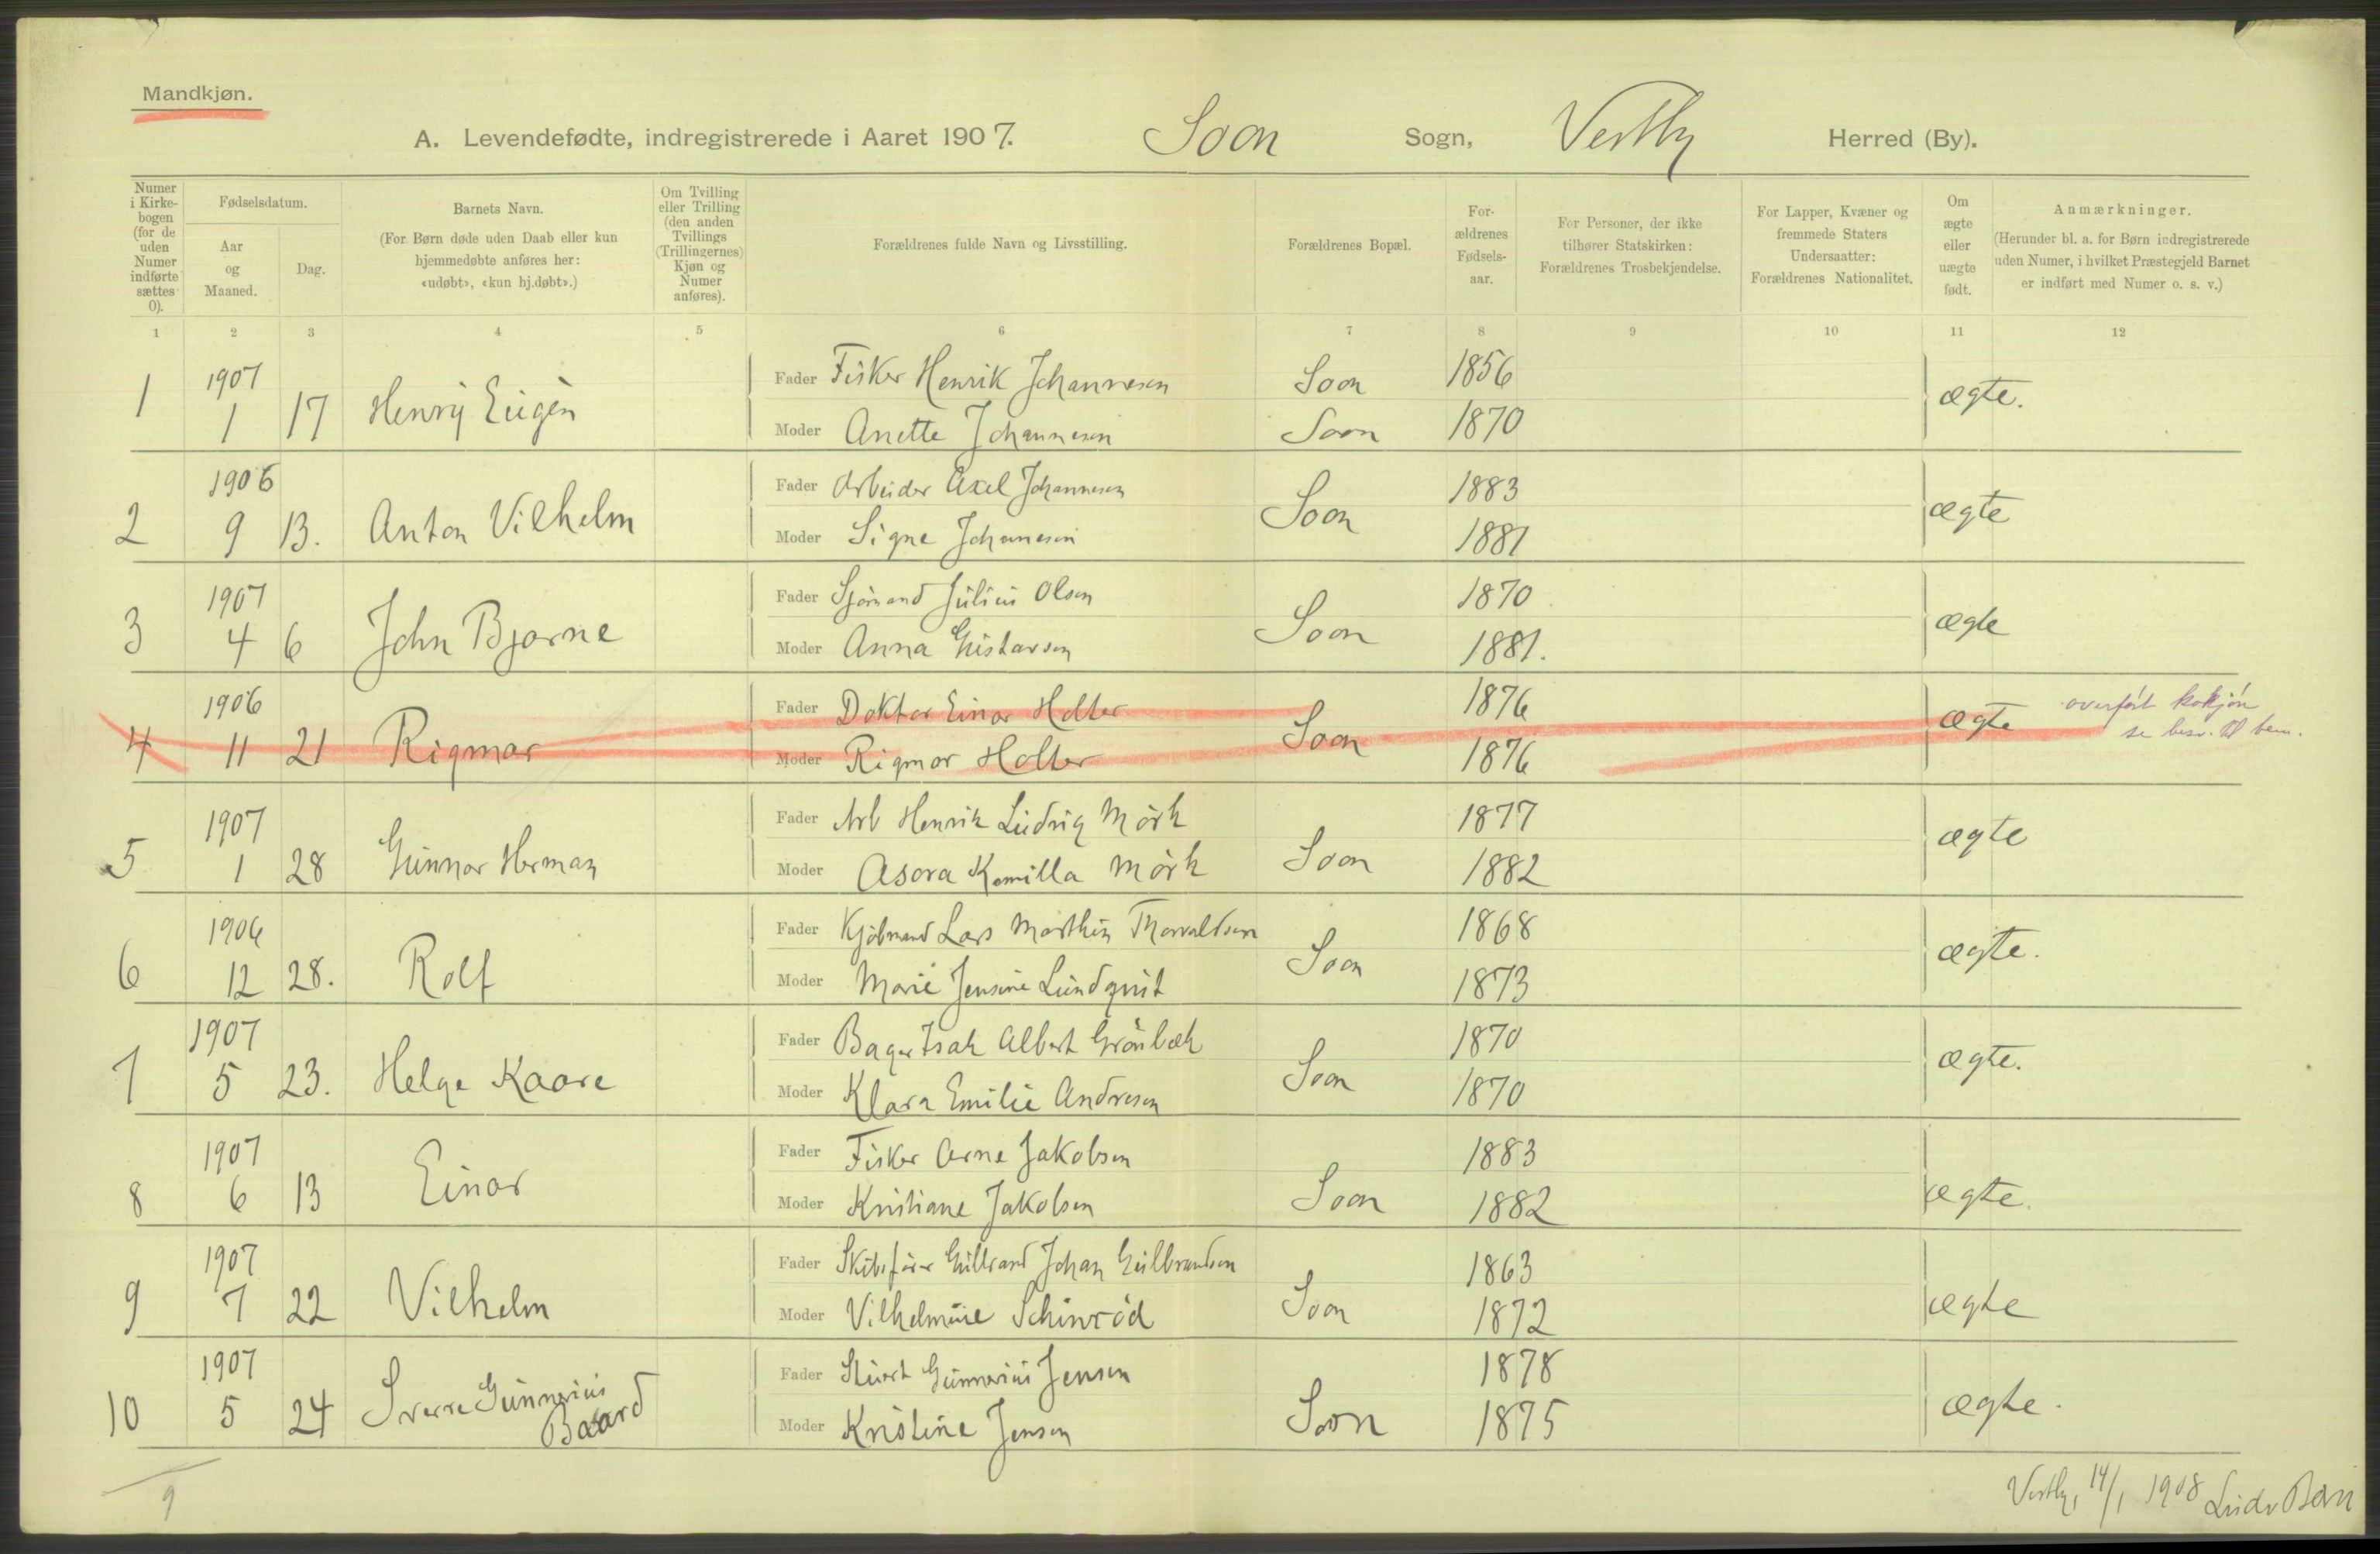 Mandkjøn.
A. Levendefødte, indregistrerede i Aaret 1907. Soon Sogn, Vestby Herred (By).
Numer i Kirkebogen (for de uden Numer indførte sættes 0).
Fødselsdatum.
Aar og Maaned.
Dag.
Barnets Navn.
(For Børn døde uden Daab eller kun hjemmedøbte anføres her: «udøbt», «kun hj.døbt».)
Om Tvilling eller Trilling (den anden Tvillings (Trillingernes) Kjøn og Numer anføres).
Forældrenes fulde Navn og Livsstilling.
Forældrenes Bopæl.
Forældrenes Fødselsaar.
For Personer, der ikke tilhører Statskirken: Forældrenes Trosbekjendelse.
For Lapper, Kvæner og fremmede Staters Undersaatter: Forældrenes Nationalitet.
Om ægte eller uægte født.
Anmærkninger.
(Herunder bl. a. for Børn indregistrerede uden Numer, i hvilket Præstegjeld Barnet er indført med Numer o. s. v.)
1 2 3 4 5 6 7 8 9 10 11 12
1 1907 1 17 Henry Eugèn
Fader Fisker Henrik Johannesen Soon 1856 ægte.
Moder Anette Johannesen Soon 1870
2 1906 9 13. Anton Vilhelm
Fader Arbeider Axel Johannesen Soon 1883 ægte
Moder Signe Johannesen 1881
3 1907 4 6 John Bjarne
Fader Sjømand Julius Olsen Soon 1870 ægte
Moder Anna Gustavsen 1881.
4 1906 11 21 Rigmor
Fader Doktor Einar Holter Soon 1876 ægte overført kvkjön
Moder Rigmor Holter 1876 se besv. til bem.
5 1907 1 28 Gunnar Herman
Fader Arb Henrik Ludvig Mörk Soon 1877 ægte
Moder Asora Kamilla Mörk 1882
6 1906 12 28. Rolf
Fader Kjøbmand Lars Marthin Thorvaldsen Soon 1868 ægte.
Moder Marie Jensine Lundqvist 1873
7 1907 5 23. Helge Kaare
Fader Bager Isak Albert Grönbæk Soon 1870 ægte.
Moder Klara Emilie Andresen 1870
8 1907 6 13 Einar
Fader Fisker Arne Jakobsen Soon 1883 ægte.
Moder Kristiane Jakobsen 1882
9 1907 7 22 Vilhelm
Fader Skibsfører Gulbrand Johan Gulbrandsen Soon 1863 ægte
Moder Vilhelmine 1872
10 1907 5 24 Sverre Gunnerius Baard
Fader Gunnerius Jensen Soon 1878 ægte.
Moder Kristine Jensen 1875
9
Vestby, 14/1 1908